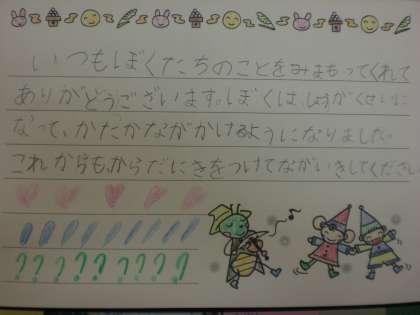 いつもぼくたちのことをみまもってくれて
ありがどうございます。ぼくは、しょうがくせいに
なって、かたかながかけるようになりました。
これからも、からだにきをつけてながいきしてください
????????